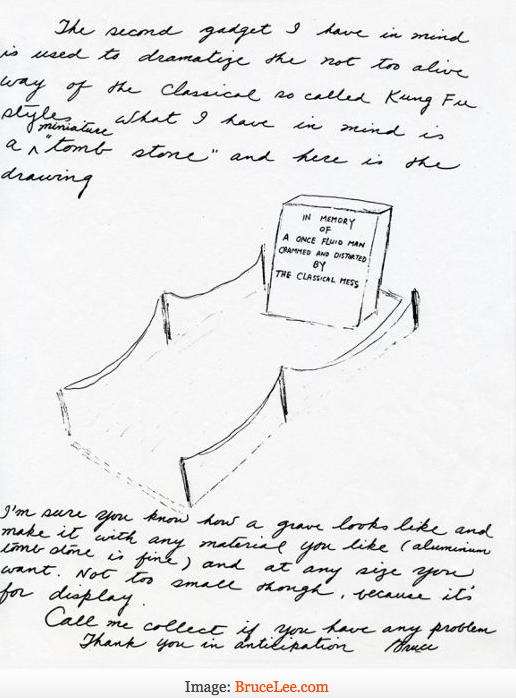 The second gadget I have in mind
is used to dramatize the not too alive
way of the Classical so called Kung Fu
styles. What I have in mind is
a miniature "tomb stone" and here is the
drawing
IN MEMORY
OF
A ONCE FLUID MAN
CRAMMED AND DISTORTED
BY
THE CLASSICAL MESS
I'm sure you know how a grave looks like and
make it with any material you like (aluminum
tomb stone is fine) and at any size you
want. Not too small though, because it's
for display.
Call me collect if you have any problem
Thank you in anticipation Bruce
Image: BruceLee.com